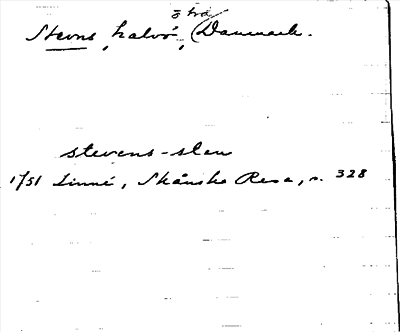 3 trä
Stevns, halvö, (Danmark.
stevens-slen
1751 Linné, Skånska Resa, s. 328